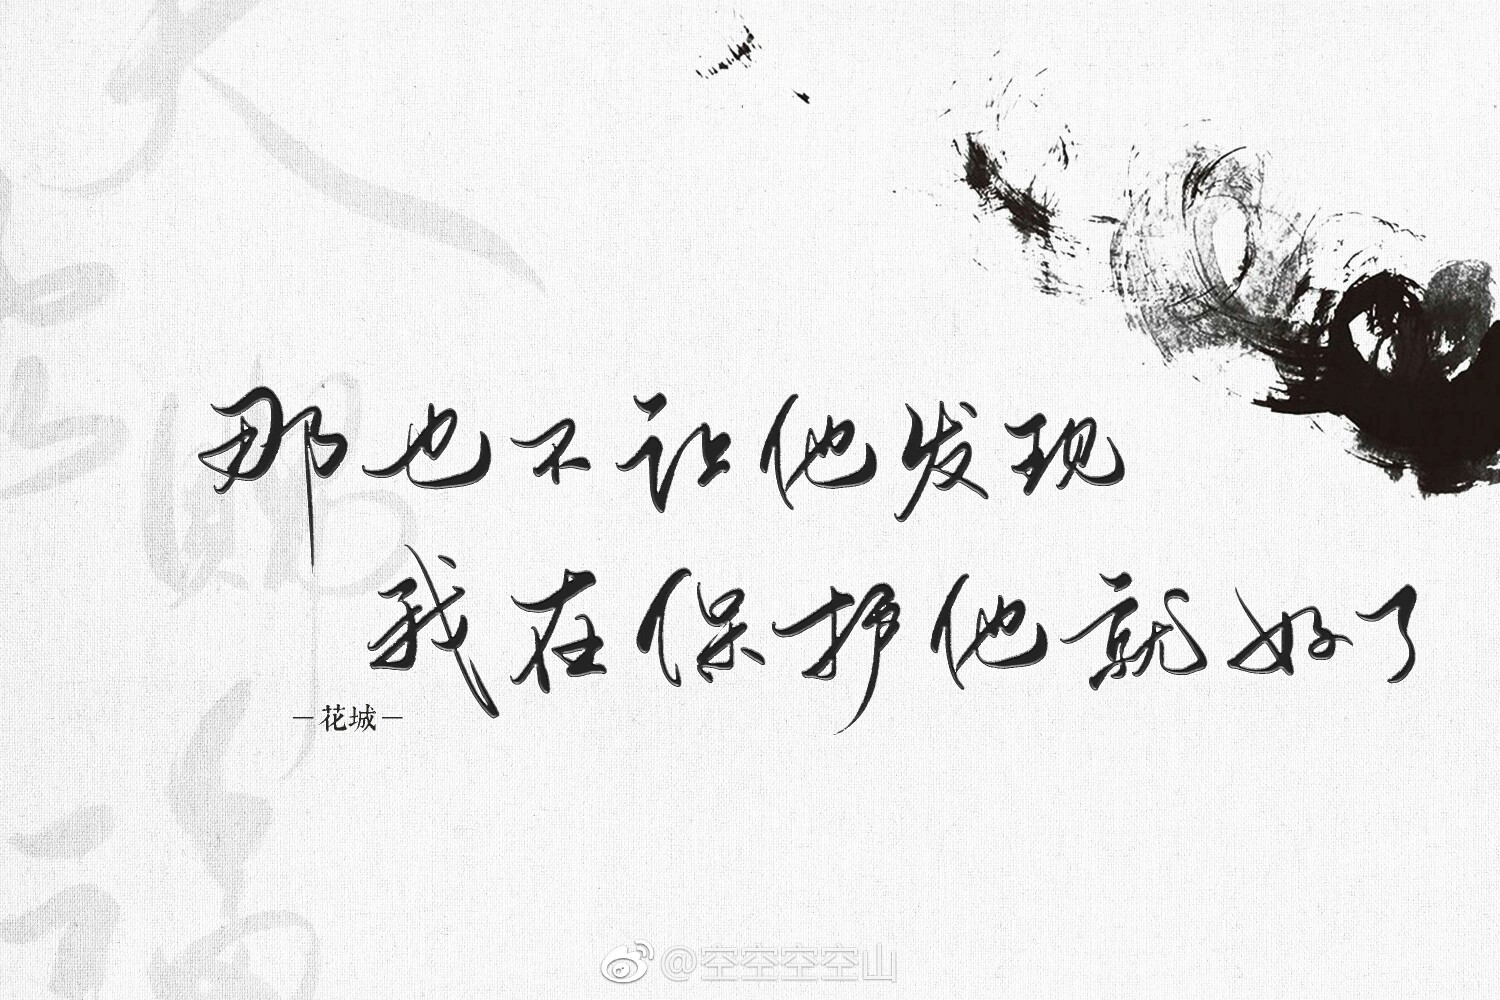 那也不让他发现
我在保护他就好了
—花城—
@空空空空山